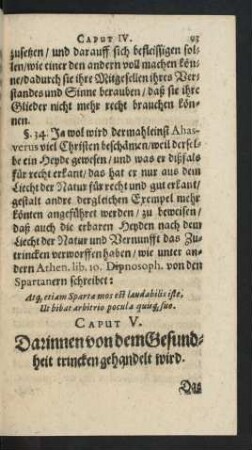 CAPUT IV.
zusetzen / und darauff sich befleissigen sol-
len / wie einer den andern voll machen kön-
ne / dadurch sie ihre Mitgesellen ihres Ver-
standes und Sinne berauben / daß sie ihre
Glieder nicht mehr recht brauchen kön-
nen.
§. 34. Ja wol wird dermahleinst Ahas-
verus viel Christen beschämen / weil derſel-
be ein Heyde gewesen / und was er dißfals
für recht erkant / das hat er nur aus dem
Liecht der Natur für recht und gut erkant /
gestalt andre dergleichen Exempel mehr
könten angeführet werden / zu beweisen /
daß auch die erbaren Heyden nach dem
Liecht der Natur und Vernunfft das Zu-
trincken verworffen haben / wie unter an-
dern Athen. lib. 10. Dipnosoph. von den
Spartanern schreibet:
Atq; etiam Sparta mos est laudabilis iste,
Ut bibat arbitrio pocula quisq; suo.
CAPUT V.
Darinnen von dem Gesund-
heit trincken gehandelt wird.
Das